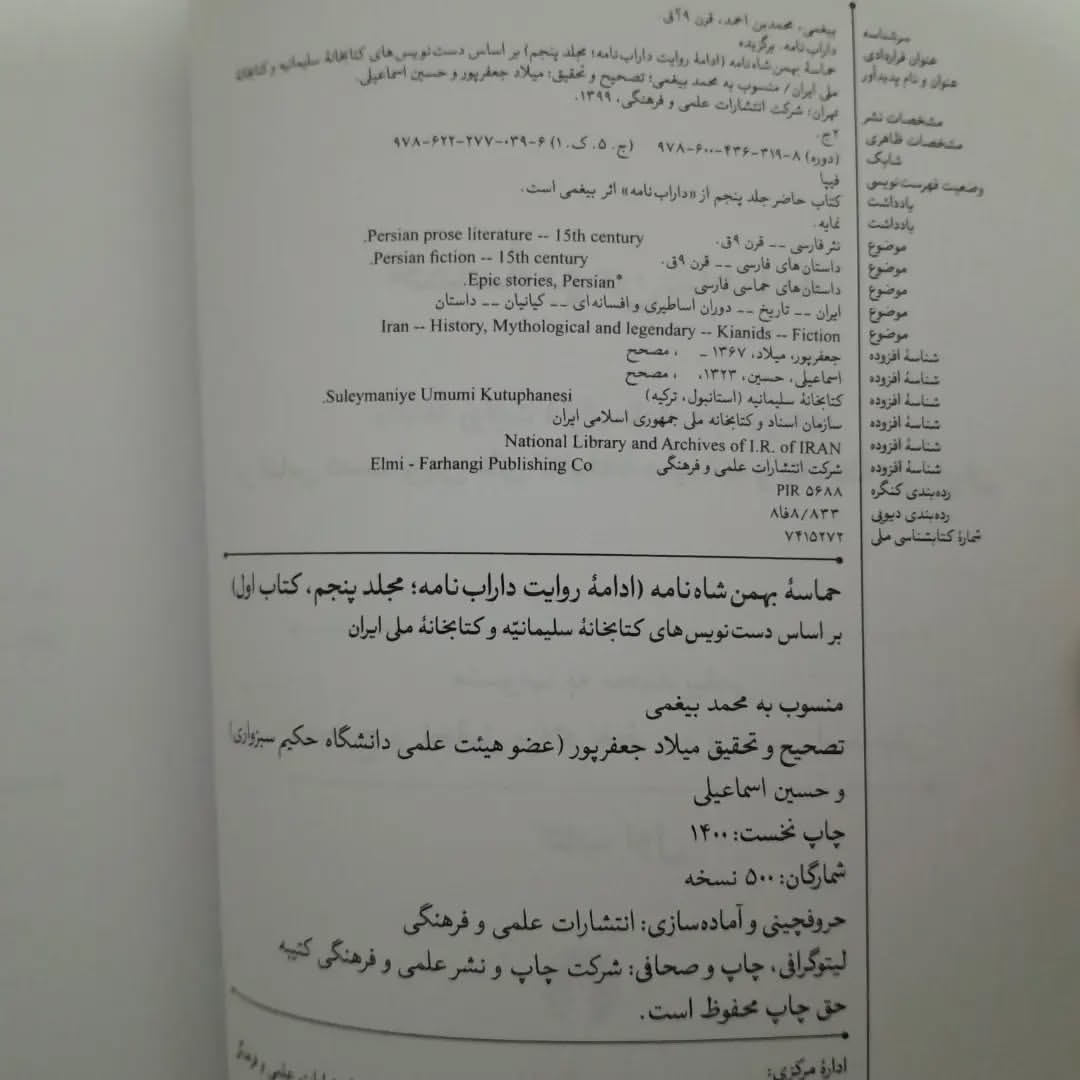 سرشناسه بیغمی، محمدبن احمد، قرن ۹؟ق.
عنوان قراردادی داراب‌نامه. برگزیده
عنوان و نام پدیدآور حماسهٔ بهمن‌شاه‌نامه (ادامهٔ روایت داراب‌نامه؛ مجلد پنجم) بر اساس دست‌نویس‌های کتابخانهٔ سلیمانیه و کتابخانهٔ
ملی ایران/ منسوب به محمد بیغمی؛ تصحیح و تحقیق: میلاد جعفرپور و حسین اسماعیلی.
مشخصات نشر تهران: شرکت انتشارات علمی و فرهنگی، ۱۳۹۹.
مشخصات ظاهری ۲ج.
شابک (دوره) ۸-۳۱۹-۴۳۶-۶۰۰-۹۷۸ (ج. ۵. ک. ۱) ۶-۰۳۹-۲۷۷-۶۲۲-۹۷۸
وضعیت فهرست‌نویسی فیپا
یادداشت کتاب حاضر جلد پنجم از «داراب‌نامه» اثر بیغمی است.
یادداشت نمایه.
موضوع نثر فارسی -- قرن ۹ق. Persian prose literature -- 15th century.
موضوع داستان‌های فارسی -- قرن ۹ق. Persian fiction -- 15th century.
موضوع داستان‌های حماسی فارسی *Epic stories, Persian.
موضوع ایران -- تاریخ -- دوران اساطیری و افسانه‌ای -- کیانیان -- داستان
موضوع Iran -- History, Mythological and legendary -- Kianids -- Fiction
شناسهٔ افزوده جعفرپور، میلاد، ۱۳۶۷ - ، مصحح
شناسهٔ افزوده اسماعیلی، حسین، ۱۳۲۳، ، مصحح
شناسهٔ افزوده کتابخانهٔ سلیمانیه (استانبول، ترکیه) Suleymaniye Umumi Kutuphanesi.
شناسهٔ افزوده سازمان اسناد و کتابخانه ملی جمهوری اسلامی ایران
شناسهٔ افزوده National Library and Archives of I.R. of IRAN
شناسهٔ افزوده شرکت انتشارات علمی و فرهنگی Elmi - Farhangi Publishing Co
رده‌بندی کنگره PIR ۵۶۸۸
رده‌بندی دیویی ۸فا۸/۸۳۳
شمارهٔ کتابشناسی ملی ۷۴۱۵۲۷۲
حماسهٔ بهمن‌شاه‌نامه (ادامهٔ روایت داراب‌نامه؛ مجلد پنجم، کتاب اول)
بر اساس دست‌نویس‌های کتابخانهٔ سلیمانیّه و کتابخانهٔ ملی ایران
منسوب به محمد بیغمی
تصحیح و تحقیق میلاد جعفرپور (عضو هیئت علمی دانشگاه حکیم سبزواری)
و حسین اسماعیلی
چاپ نخست: ۱۴۰۰
شمارگان: ۵۰۰ نسخه
حروفچینی و آماده‌سازی: انتشارات علمی و فرهنگی
لیتوگرافی، چاپ و صحافی: شرکت چاپ و نشر علمی و فرهنگی کتیبه
حق چاپ محفوظ است.
ادارهٔ مرکزی: